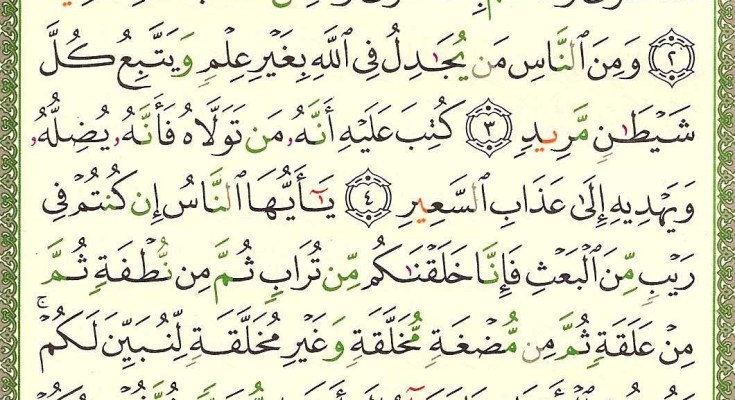 ﴿٢﴾ وَمِنَ ٱلنَّاسِ مَن يُجَٰدِلُ فِى ٱللَّهِ بِغَيْرِ عِلْمٍ وَيَتَّبِعُ كُلَّ
شَيْطَٰنٍ مَّرِيدٍ ﴿٣﴾ كُتِبَ عَلَيْهِ أَنَّهُۥ مَن تَوَلَّاهُ فَأَنَّهُۥ يُضِلُّهُۥ
وَيَهْدِيهِ إِلَىٰ عَذَابِ ٱلسَّعِيرِ ﴿٤﴾ يَٰٓأَيُّهَا ٱلنَّاسُ إِن كُنتُمْ فِى
رَيْبٍ مِّنَ ٱلْبَعْثِ فَإِنَّا خَلَقْنَٰكُم مِّن تُرَابٍ ثُمَّ مِن نُّطْفَةٍ ثُمَّ
مِنْ عَلَقَةٍ ثُمَّ مِن مُّضْغَةٍ مُّخَلَّقَةٍ وَغَيْرِ مُخَلَّقَةٍ لِّنُبَيِّنَ لَكُمْ ۚ